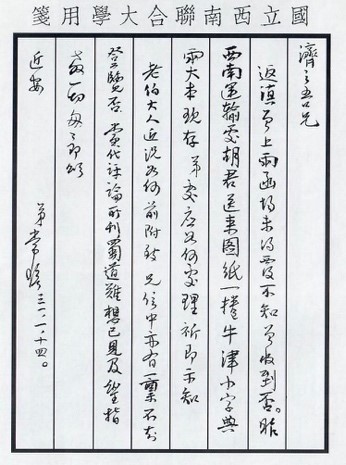 國立西南聯合大學用箋
濟之吾兄
返滇曾上兩函均未得覆不知曾收到否。昨
西南運輸處胡君送來圖紙一捲牛津小字典
兩大本現存弟處應如何處理祈即示知
老伯大人近況如何前附致兄信中亦有一稟不知
登覽否當代評論所刊蜀道難想已見及望指
教一切匆匆即頌
近安
弟常 三一·一·十四。